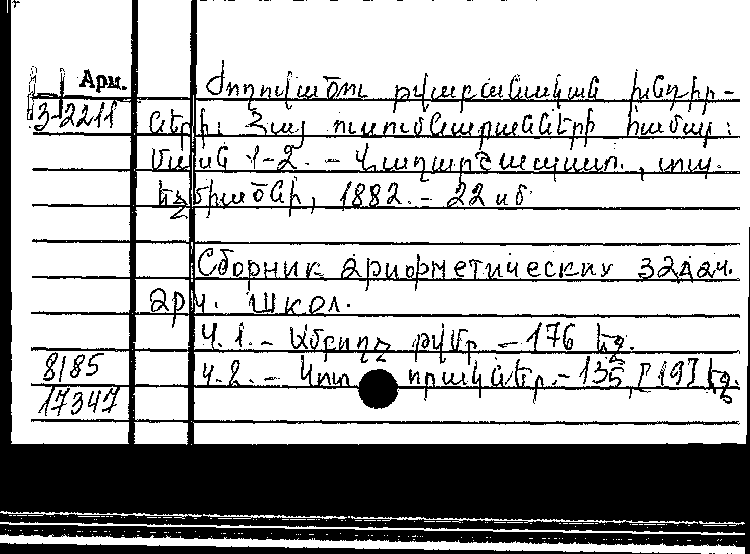 Арм.
3-2211
Ժողովածու թվաբանական խնդիր-
ների: Հայ ուսումնարանների համար:
Մասն 1-2. - Վաղարշապատ., տպ.
Էջմիածնի, 1882. - 22 սմ
Сборник арифметических задач.
арм. школ.
Ч. 1. - Ամբողջ թվեր - 176 էջ.
Ч. 2. - Կոտորակներ. - 135, [19] էջ
8185
17347